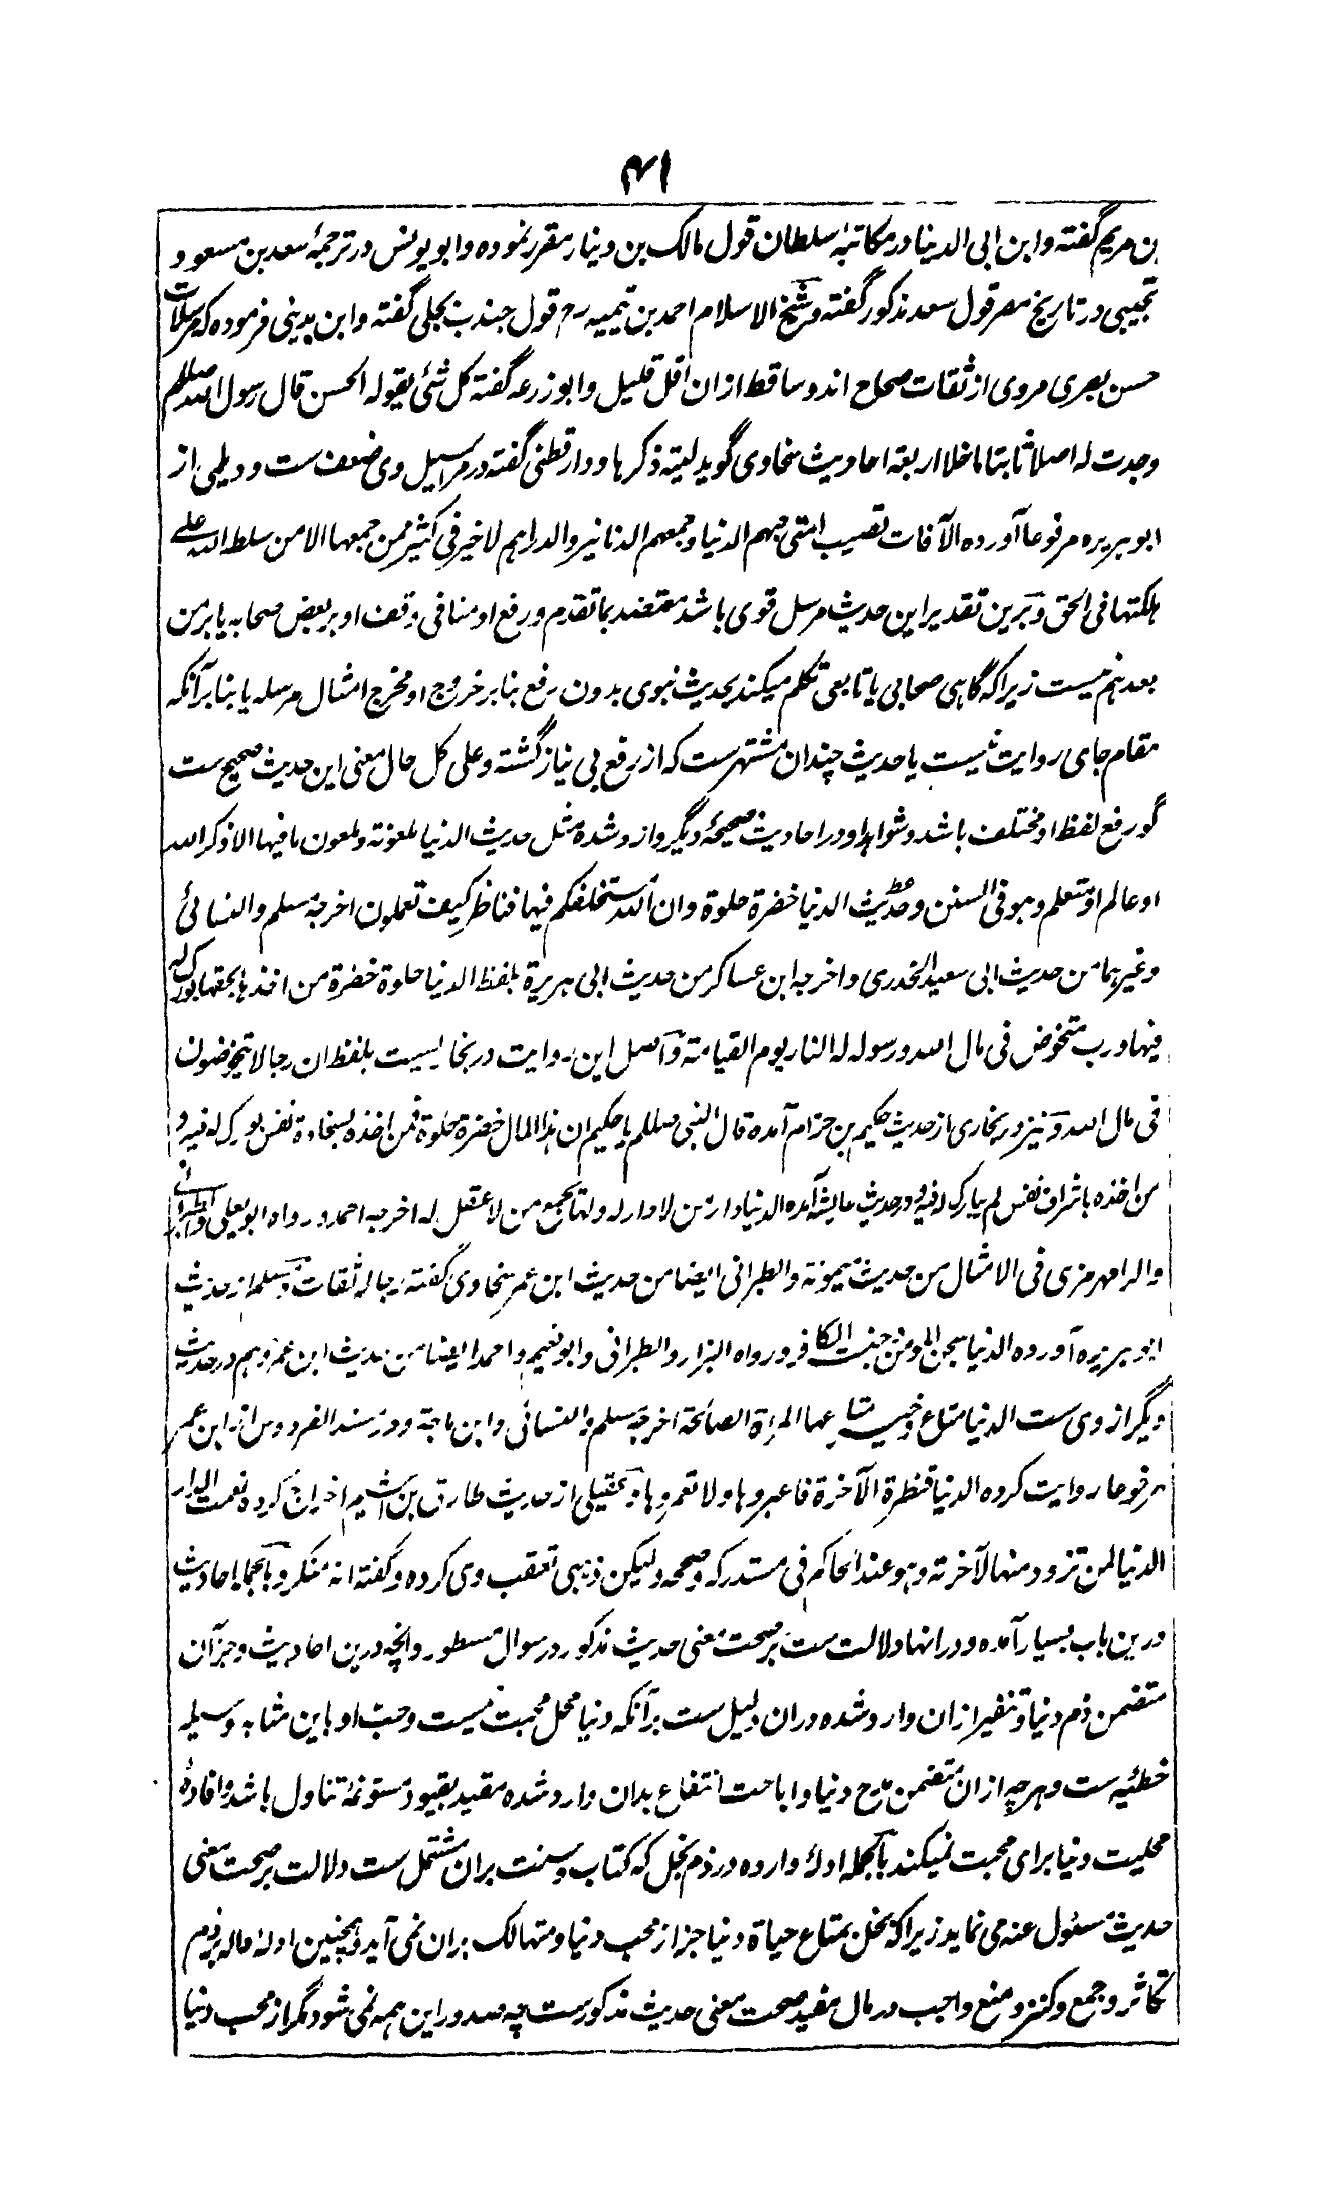 ۴۱
بن مریم گفته و ابن ابی الدنیا در مکاتبۂ سلطان قول مالک بن دینار مقرر نموده و ابو یونس در ترجمۂ سعد بن مسعود
تجیبی در تاریخ مصر قول سعد مذکور گفته و شیخ الاسلام احمد بن تیمیه رح قول جندب بجلی گفته و ابن مدینی فرموده که مرسلات
حسن بصری مروی از ثقات صحاح اند و ساقط ازان اقل قلیل و ابو زرعه گفته کل شئی یقوله الحسن قال رسول الله صلعم
وجدت له اصلا ثابتا ماخلا اربعة احادیث سخاوی گوید لیته ذکرها و دارقطنی گفته در مراسیل وی ضعف ست و دیلمی از
ابو هریره مرفوعا آورده الآفات تصیب امتی حبهم الدنیا و جمعهم الدنانیر والدراهم لا خیر فی کثیر ممن جمعها الا من سلطه الله علی
هلکتها فی الحق و برین تقدیر این حدیث مرسل قوی باشد معتضد بما تقدم و رفع او منافی وقف او بر بعض صحابه یا بر من
بعدهم نیست زیرا که گاهی صحابی یا تابعی تکلم میکند بحدیث نبوی بدون رفع بنابر خروج او مخرج امثال مرسله یا بنابر آنکه
مقام جای روایت نیست یا حدیث چندان مشتهر ست که از رفع بی نیاز گشته و علی کل حال معنی این حدیث صحیح ست
گو رفع لفظ او مختلف باشد و شواهد او در احادیث صحیحۂ دیگر وارد شده مثل حدیث الدنیا ملعونة و ملعون ما فیها الا ذکر الله
او عالم او متعلم و هو فی السنن و حدیث الدنیا خضرة حلوة و ان الله مستخلفکم فیها فناظر کیف تعملون اخرجه مسلم والنسائی
و غیرهما من حدیث ابی سعید الخدری و اخرجه ابن عساکر من حدیث ابی هریرة بلفظ الدنیا حلوة خضرة من اخذها بحقها بورک له
فیها و رب متخوض فی مال الله و رسوله له النار یوم القیامة و اصل این روایت در بخاریست بلفظ ان رجالا یتخوضون
فی مال الله و نیز در بخاری از حدیث حکیم بن حزام آمده قال النبی صلعم یا حکیم ان هذا المال خضرة حلوة فمن اخذه بسخاوة نفس بورک له فیه و
من اخذه باشراف نفس لم یبارک له فیه و در حدیث عایشه آمده الدنیا دار من لا دار له و لها یجمع من لا عقل له اخرجه احمد و رواه ابو یعلی والطبرانی
والرامهرمزی فی الامثال من حدیث میمونة والطبرانی ایضا من حدیث ابن عمر سخاوی گفته رجاله ثقات و مسلم از حدیث
ابو هریره آورده الدنیا سجن المومن جنت الکافر و رواه البزار والطبرانی و ابو نعیم و احمد ایضا من حدیث ابن عمر و هم در حدیث
دیگر از وی ست الدنیا متاع و خیر متاعها المرأة الصالحة اخرجه مسلم والنسائی و ابن ماجة و در مسند الفردوس از ابن عمر
مرفوعا روایت کرده الدنیا قنطرة الآخرة فاعبروها ولا تعمروها و عقیلی از حدیث طارق بن اشیم اخراج کرده نعمت الدار
الدنیا لمن تزود منها لآخرته و هو عند الحاکم فی مستدرکه و صححه ولیکن ذهبی تعقب وی کرده و گفته انه منکر و بالجمله احادیث
درین باب بسیار آمده و در انها دلالت ست بر صحت معنی حدیث مذکور در سوال مسطور و انچه درین احادیث و جز آن
متضمن ذم دنیا و تنفیر ازان وارد شده دران دلیل ست بر آنکه دنیا محل محبت نیست و حب او باین مثابه وسیلۂ
خطئیه ست و هر چه ازان متضمن مدح دنیا و اباحت انتفاع بدان وارد شده مقید بقیود مسوغۂ تناول باشد و افادۂ
محلیت دنیا برای محبت نمیکند بالجمله ادلۂ وارده در ذم بخل که کتاب و سنت بران مشتمل ست دلالت بر صحت معنی
حدیث مسئول عنه می نماید زیرا که بخل بمتاع حیاة دنیا جز از محب دنیا و متهالک بران نمی آید و همچنین ادلۂ داله بر ذم
تکاثر و جمع و کنز و منع واجب در مال مفید صحت معنی حدیث مذکور ست چه صدور این همه نمی شود مگر از محب دنیا